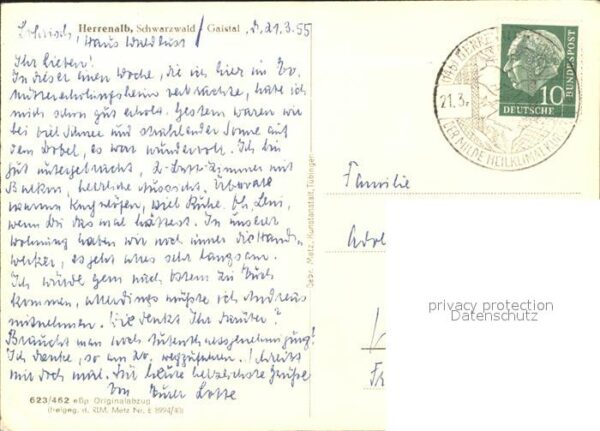 Herrenalb, Schwarzwald / Gaistal, d. 21.3.55
Haus Waldlust
Ihr Lieben!
In dieser einen Woche, die ich hier im Ev.
Müttererholungsheim verbrachte, habe ich
mich schon gut erholt. Gestern waren wir
bei viel Schnee und strahlender Sonne auf
dem Dobel, es war wundervoll. Ich bin
gut untergebracht, 2-Bett-Zimmer mit
Balkon, herrliche Aussicht. Überall
warme Kachelöfen, viel Ruhe. Oh, Leni,
wenn Du das mal hättest. In unserer
Wohnung haben wir noch immer die Handwerker, es geht alles sehr langsam.
Ich würde gern nach Ostern zu Euch
kommen, allerdings müßte ich Andreas
mitnehmen. Wie denkt Ihr darüber?
Braucht man noch Aufenthaltsgenehmigung?
Ich denke, so am 20. wegzufahren. Schreibt
mir doch mal. Für heute herzlichste Grüße
von Eurer Lotte
623/462 eBp Originalabzug
(freigeg. d. RLM. Metz Nr. E 8994/40)
Gebr. Metz, Kunstanstalt, Tübingen
21.3.
DEUTSCHE
BUNDESPOST
10
Familie
privacy protection
Datenschutz